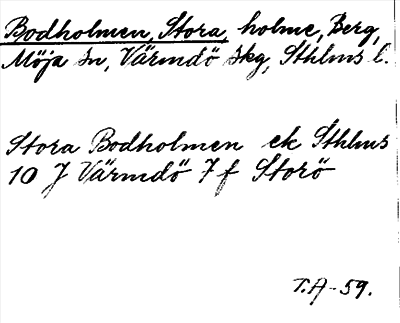 Bodholmen, Stora, holme, Berg,
Möja sn, Värmdö skg, Sthlms l.
Stora Bodholmen ek Sthlms
10 J Värmdö 7 f Storö
T.A-59.